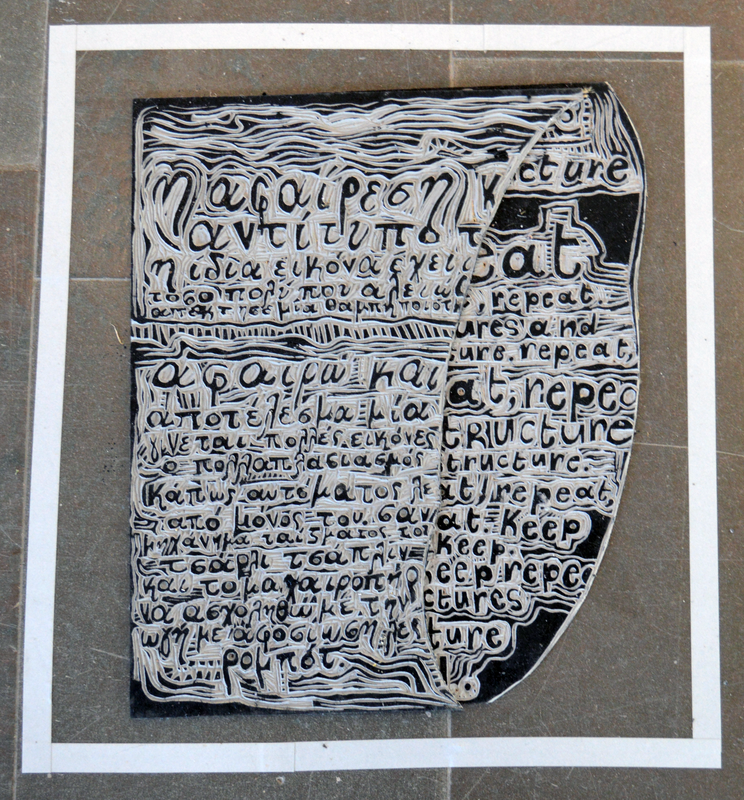 η αφαίρεση κ
αντίτυπο τ
η ίδια εικόνα έχει
τόσο πολύ που
σε μία θαμπή
αφαιρώ και
αποτέλεσμα μία
γίνεται πολλές εικόνες
ο πολλαπλασιασμός
κάπως αυτόματος
από μόνος του σαν
μηχάνημα
τσάρλι τσάπλιν
και το μαχαιροπήρ
να ασχοληθώ με την
ωγή με αφοσίωση λες
ρομπότ.
cture
eat
, repeat.
ures and
ure. repeat,
at, repea
tructure
tructure.
at, repeat,
at. Keep
keep.
eep repea
ctures
ture